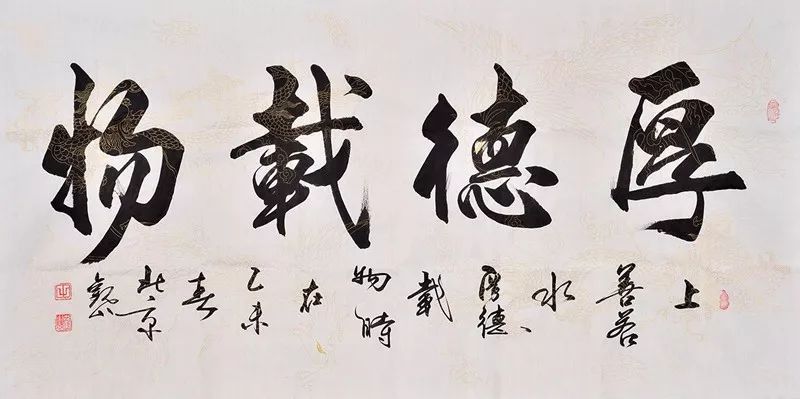 厚德載物
上善若水厚德、載物時在乙未春北京